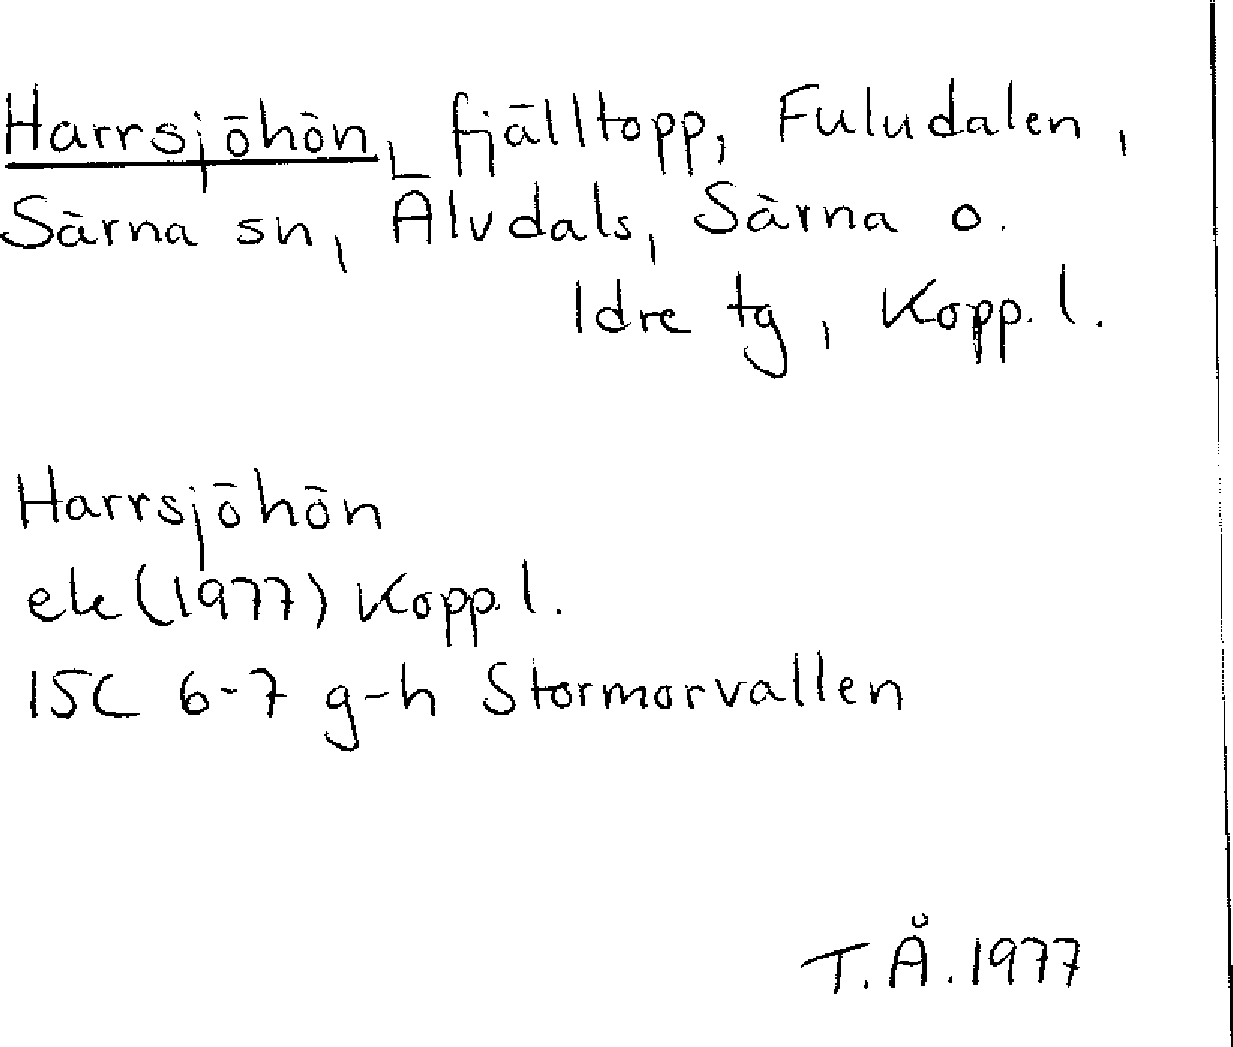 Harrsjöhön, fjälltopp, Fuludalen,
Särna sn, Älvdals, Särna o.
Idre tg, Kopp. l.
Harrsjöhön
ek (1977) Kopp. l.
15C 6-7 g-h Stormorvallen
T. Å. 1977